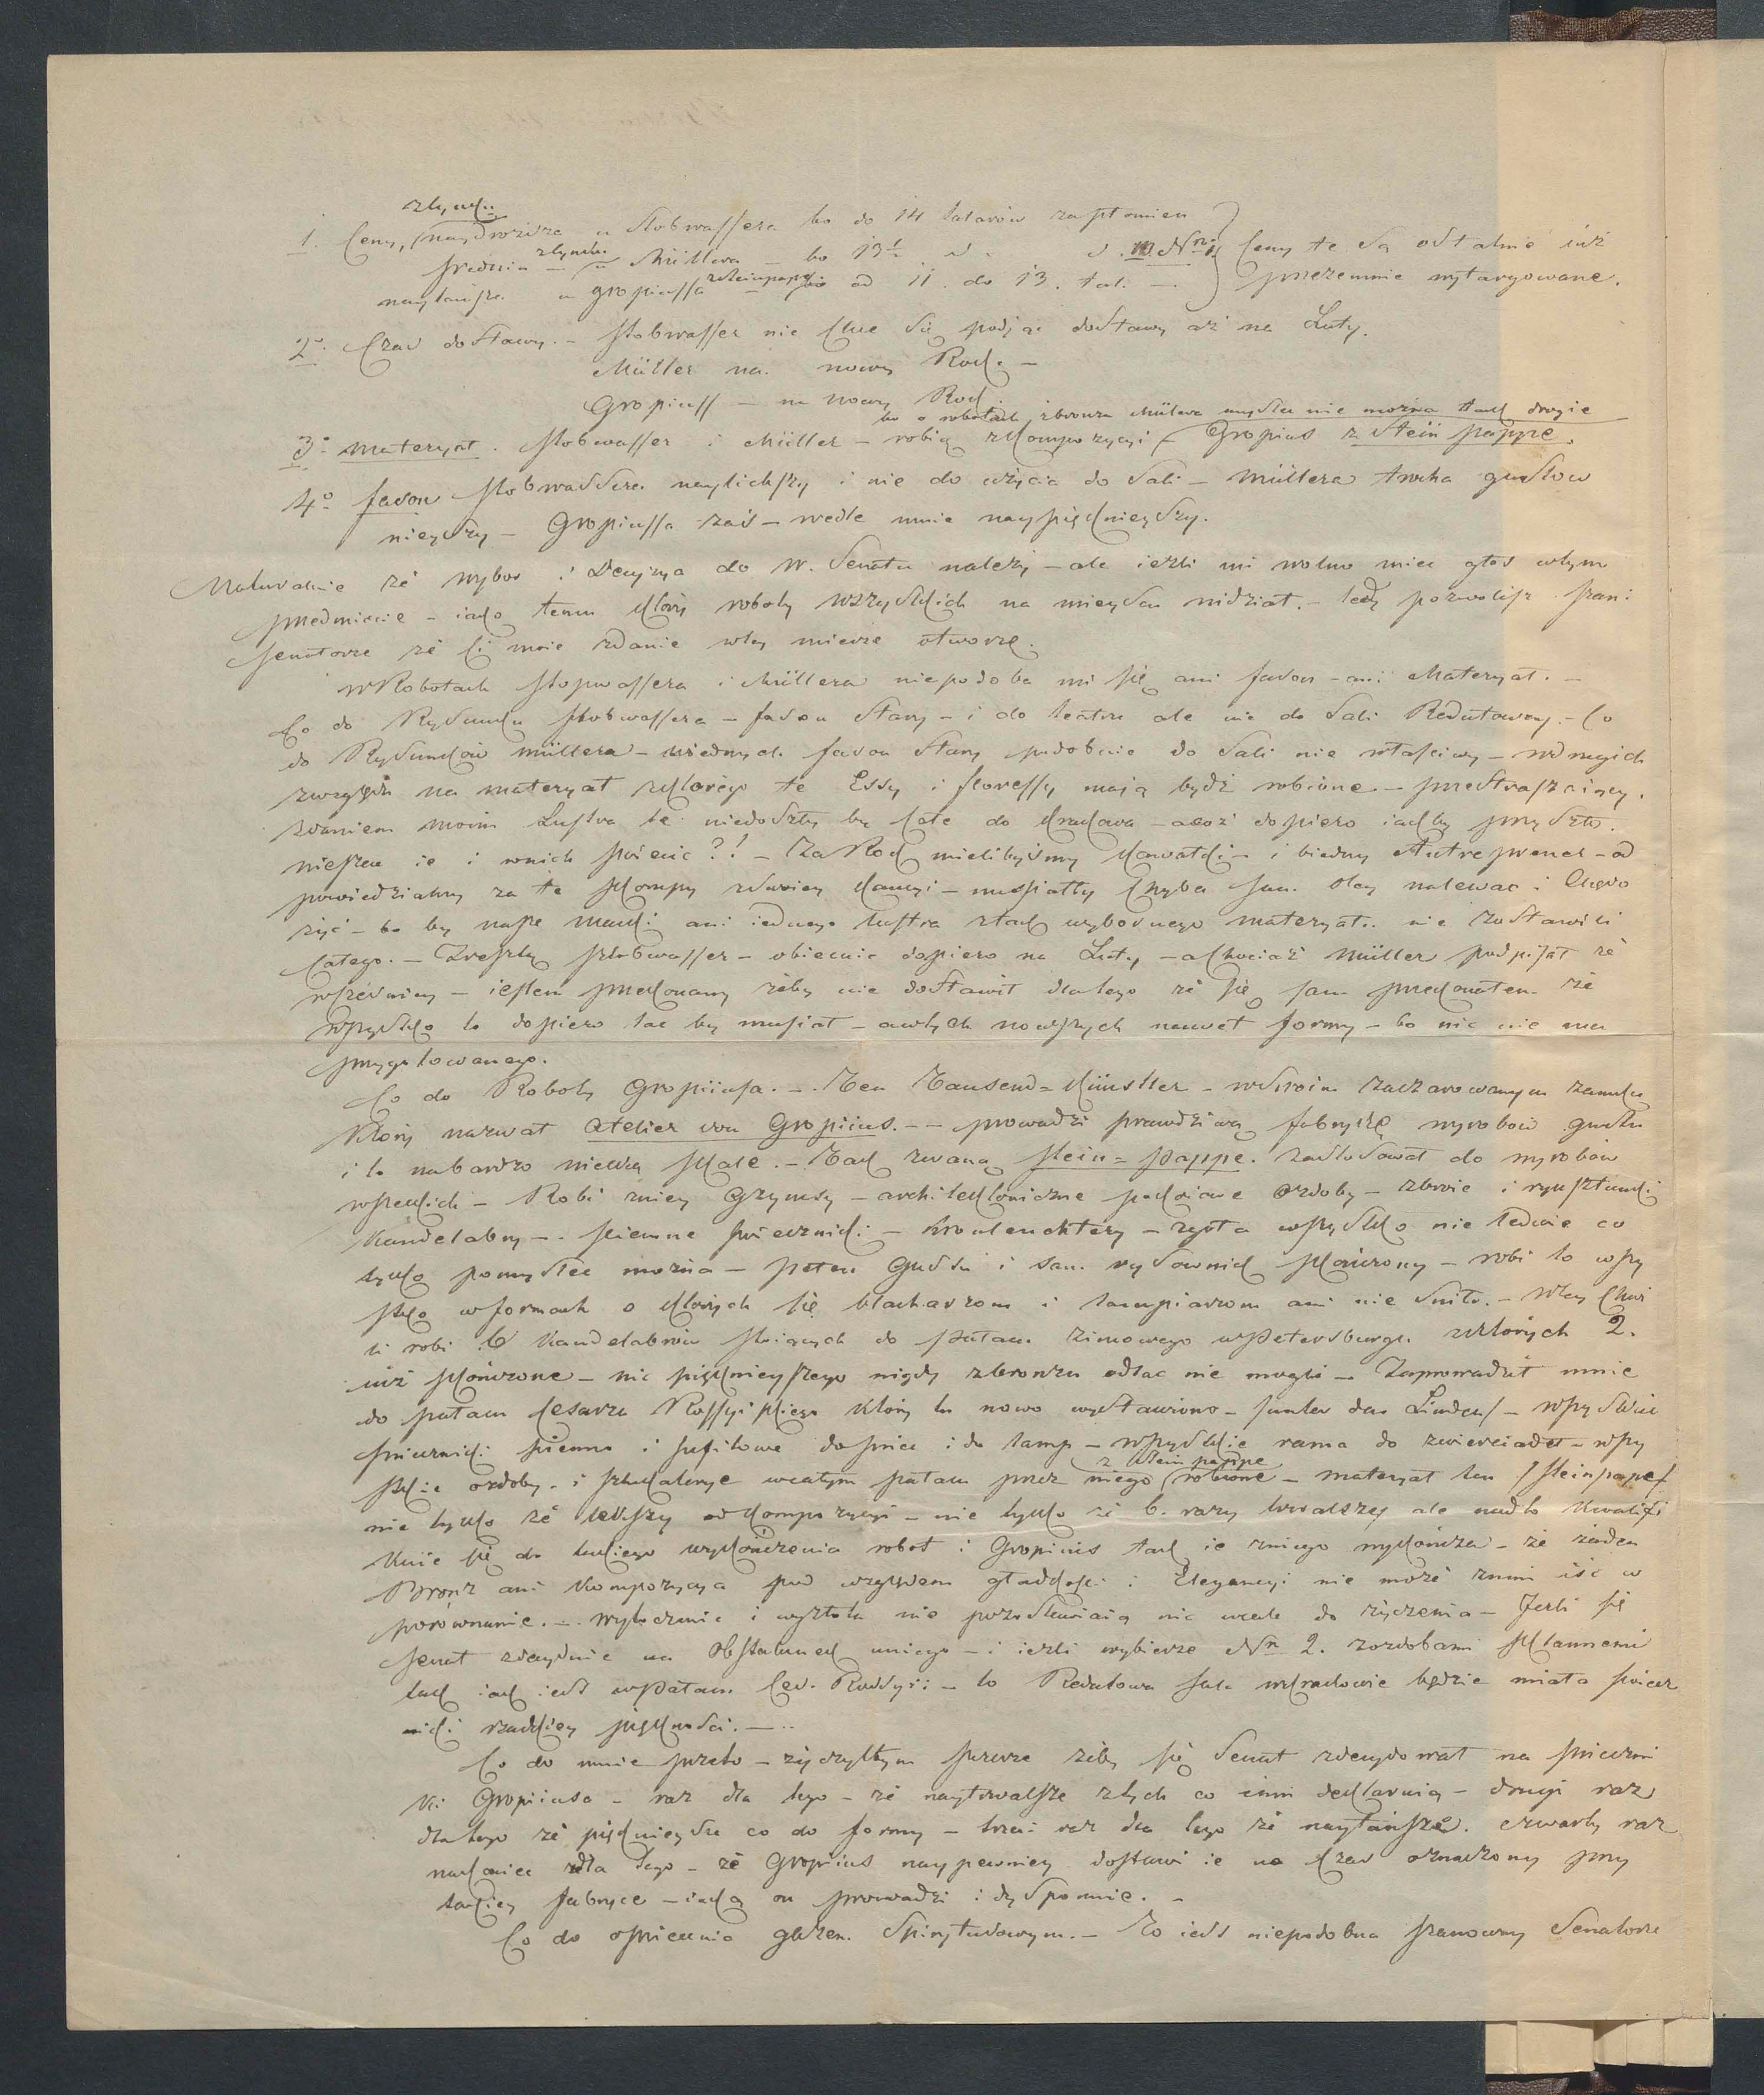 zcynku
1. Ceny, naydroższa u Stobwassera bo do 14 talarów za płomień
średnia zcynku u Müllera – bo 13½ d. d. Ceny te są ostatnie iuż
naytańsze u Gropiussa zsteinpappe od 11. do 13. tal. — przezemnie wytargowane.
2° Czas dostawy. – Stobwasser nie chce się podjąć dostawy aż na Luty.
Müller na nowy Rok. –
Gropiuss – na nowy Rok.
bo o robotach zbronzu Müllera myśleć nie można tak drogie
3° Materyał. Stobwasser i Müller – robią zkompozycyi – Gropius z Stein pappe.
4° fason Stobwassera naylichszy i nie do użycia do Sali – Müllera trocha gustow
nieyszy – Gropiussa zaś – wedle mnie naypięknieyszy.
Naturalnie że wybor i Decyzya do W. Senatu należy – ale ieżli mi wolno mieć głos wtym
przedmiocie – iako temu który roboty wszystkich na mieyscu widział. – tedy pozwolisz Panie
Senatorze że Ci moie zdanie wtey mierze otworzę.
wRobotach Stopwassera i Müllera niepodoba mi się ani fason – ani Materyał. –
Co do Rysunku Stobwassera – fason Stary – i do teatru ale nie do Sali Redutowey. – Co
do Rysunków Müllera – wiednych fason Stary podobnie do Sali nie właściwy – wdrugich
zwzględu na materyał zktórego te Essy i floressy maią bydź robione – przestraszaiący.
zdaniem moim Lustra te niedoszły by całe do Krakowa – acoż dopiero iakby przyszło
nieszcz ie i wnich świecić?! – Za Rok mielibyśmy kawałki – i biedny Antreprener – od
powiedzialny za te
życ – bo by nasze ani iednego lustra ztak wybornego materyału nie zostawili
całego. – Zresztą Stobwasser – obiecuie dopiero na Luty – achociaż Müller podpisał że
wcześniey – iestem przekonany żeby nie dostawił dlatego że się sam przekonałem że
wszystko to dopiero lać by musiał – awtych nowszych nawet formy – bo nic nie ma
przygotowanego.
Co do Roboty Gropiiusa. – Ten Tausend=Künstler – wSwoim zaczarowanym zamku
który nazwał Atelier von Gropiius. – – prowadzi prawdziwą fabrykę wyrobów gustu
i to nabardzo wielką Skalę. – Tak zwaną Stein=Pappe. zastosował do wyrobów
wszelkich – Robi zniey Gzymsy – architektoniczne ozdoby – zbroie i rynsztunki
Kandelabry – – scienne świeczniki – Kronleuchtery – zgoła wszystko nie ledwie co
tylko pomyśleć można – pełen Gustu i sam rysownik skończony – robi to wszy
stko wformach o których się blacharzom i lampiarzom ani nie śniło. – Wtey chwi
li robi 6 Kandelabrów stoiących do Pałacu Zimowego wPetersburgu zktórych 2.
iuż skończone – nic pięknieyszego nigdy zbronzu odlać nie mogli – Zaprowadził mnie
do pałacu Cesarza Rossyiskiego który tu nowo wystawiono – Unter den Linden – wszystkie
świeczniki scienne i sufitowe do świec i do lamp – wszystkie rama do zwierciadeł – wszy
z Stein pappe
stkie ozdoby i sztukaterye wcałym pałacu przez niego robione – Materyał ten /Steinpape/
nie tylko że lekszy od kompozycyi – nie tylko że 6. razy trwalszy ale nadto kwalifi
kuie się do takiego wykończenia robot i Gropiius tak ie zniego wykończa – że żaden
Bronz ani Kompozycya pod względem gładkości i Elegancyi nie może znim iść w
porównanie. – wyzłocenie i wyrobota nie pozostawiaią nic wcale do życzenia – Jeżli się
Senat zdecyduie na Obstalunek uniego – i ieżli wybierze Nr 2. zozdobami Szklannemi
tak iak iest wPałacu Ces. Rossyi: – to Redutowa Sala wKrakowie będzie miała świecz
niki rzadkiey piękności. – ..
Co do mnie przeto – życzyłbym szczerze żeby się Senat zdecydował na świeczni
ki Gropiiusa – raz dla tego – że naytrwalsze ztych co inni deklaruią – drugi raz
dlatego że pięknieysze co do formy – trzeci raz dla tego że naytańsze. czwarty raz
nakoniec dla tego – że Gropiius naypewniey dostawi ie na czas oznaczony przy
takiey fabryce – iaką on prowadzi i dysponuie. –
Co do oświecenia gazem Spirytusowym. – To iest niepodobna Szanowny Senatorze